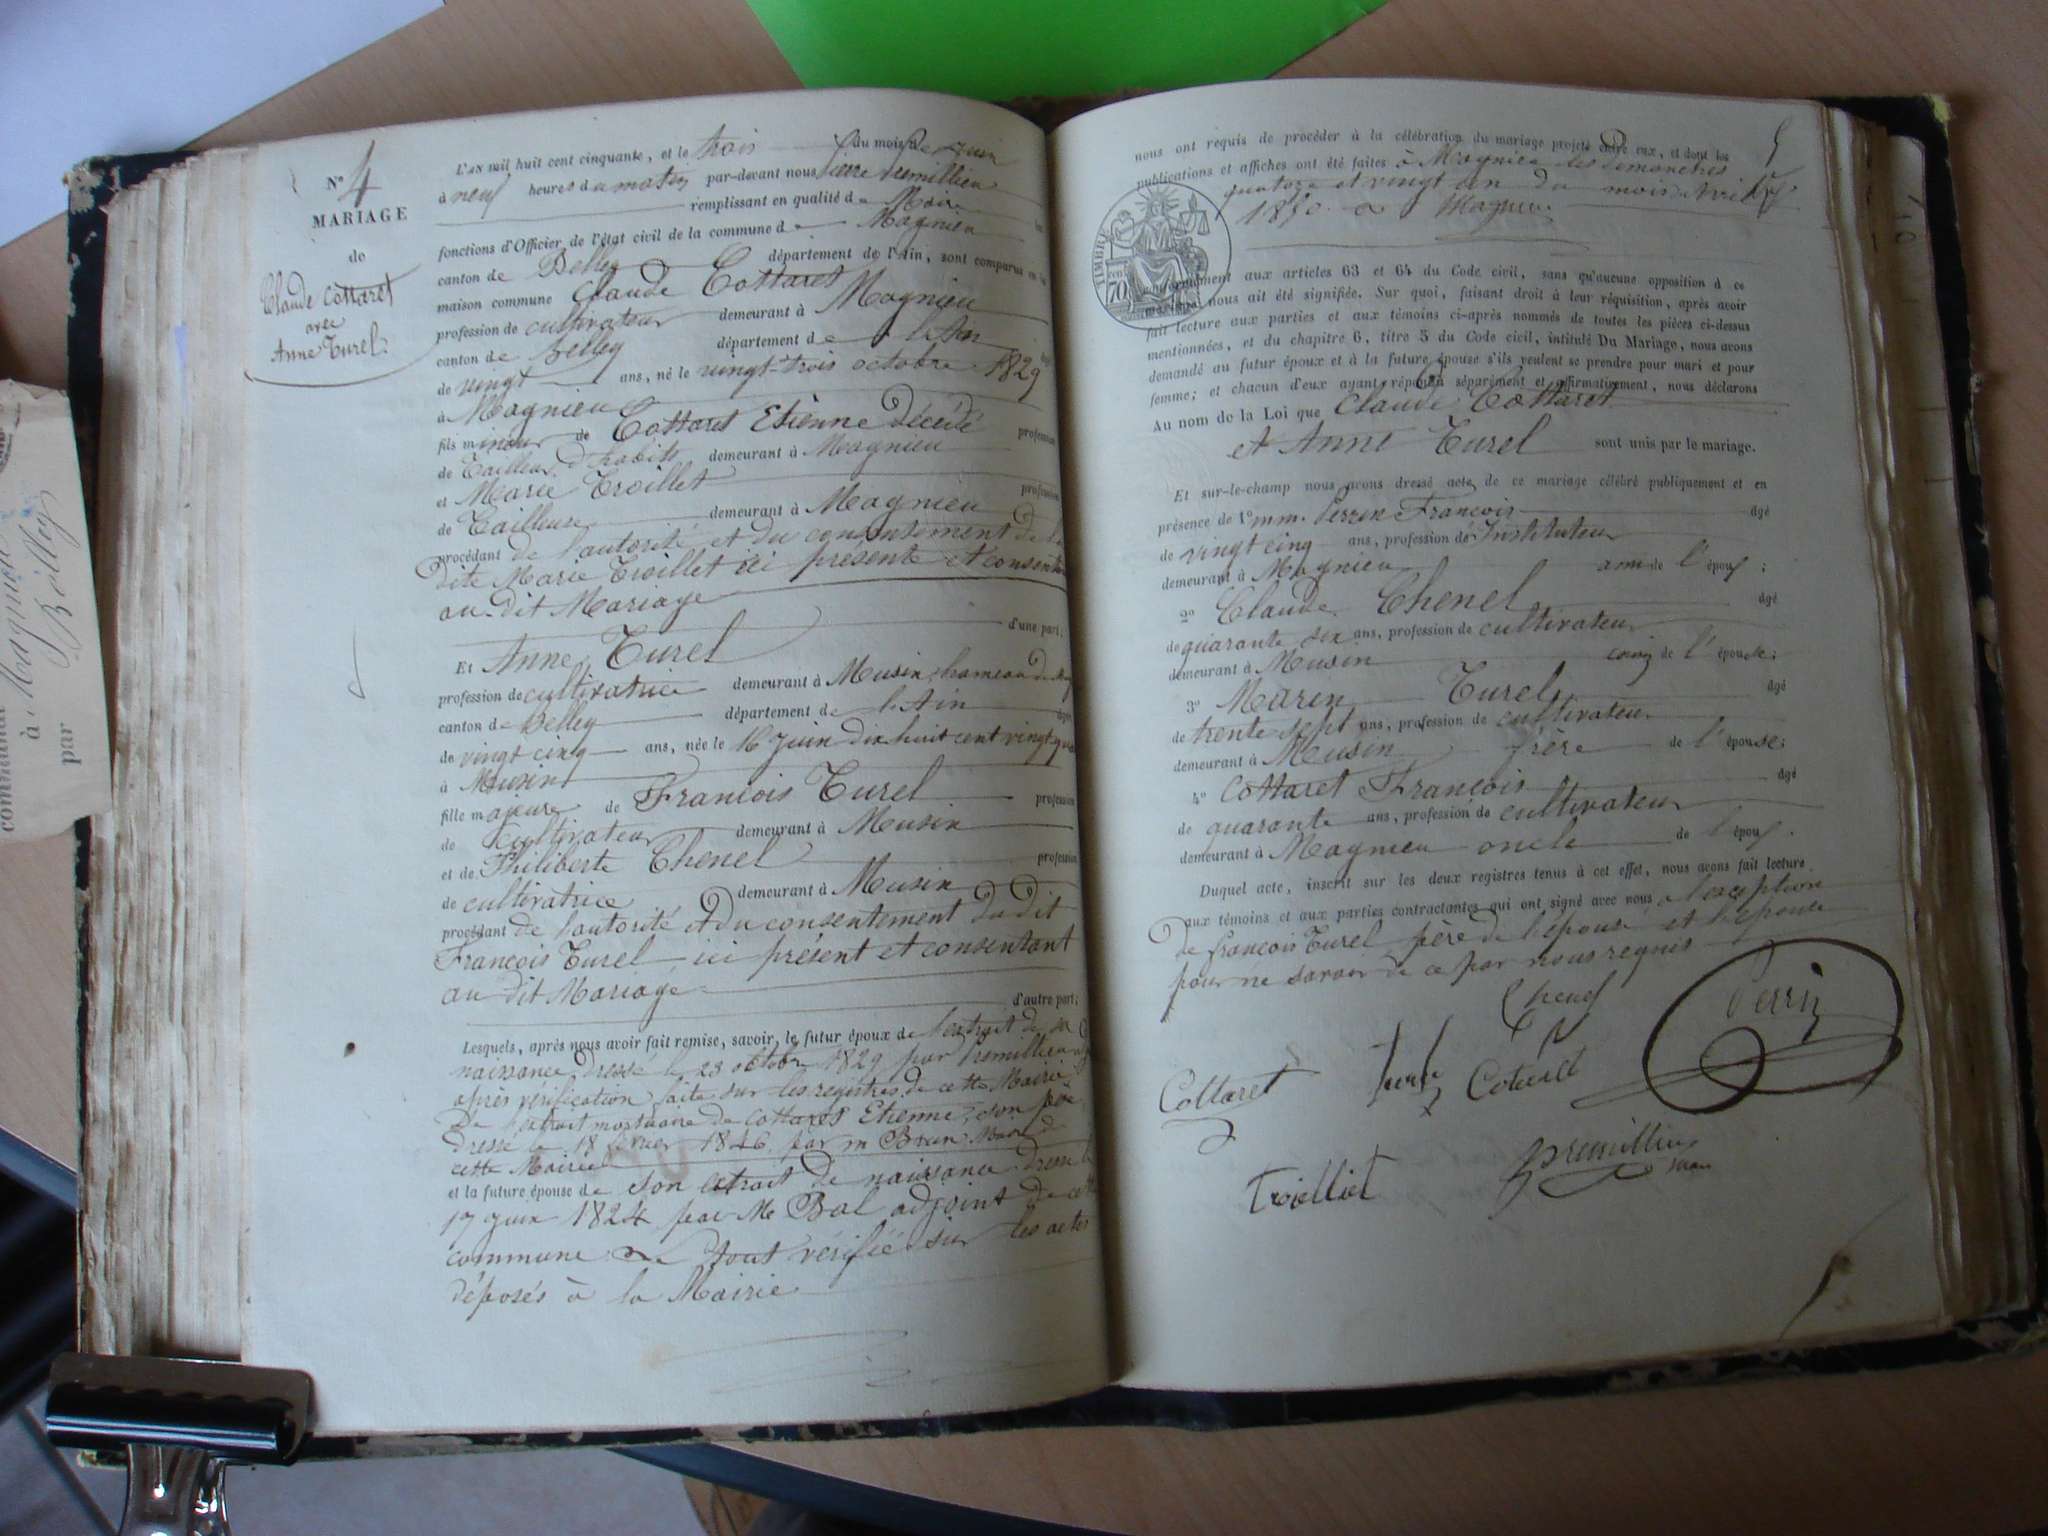 N° 4
MARIAGE
de
Claude Cottaret
avec
Anne Turel
L'an mil huit cent cinquante, et le trois du mois de juin
à neuf heures du matin par-devant nous Pierre Premillieu
remplissant en qualité de Maire
fonctions d'Officier de l'état civil de la commune de Magnieu
canton de Belley département de l'Ain, sont comparus en
maison commune Claude Cottaret
profession de cultivateur demeurant à Magnieu
canton de belley département de l'Ain
de vingt ans, né le vingt-trois octobre 1829
à Magnieu
fils mineur de Cottaret Etienne décédé profession
de Tailleur d'habits demeurant à Magnieu
et Marie Troillet profession
de Tailleuse demeurant à Magnieu
procédant de l'autorité et du consentement de la
dite Marie Troillet ici présente et consentante
au dit Mariage
d'une part;
Et Anne Turel
profession de cultivatrice demeurant à Musin, hameau de
canton de Belley département de l'Ain âgée
de vingt cinq ans, née le 16 juin dix huit cent vingt
à Musin
fille majeure de François Turel profession
de cultivateur demeurant à Musin
et de Philiberte Chenel profession
de cultivatrice demeurant à Musin
procédant de l'autorité et du consentement du dit
François Turel, ici présent et consentant
au dit Mariage
d'autre part;
Lesquels, après nous avoir fait remise, savoir, le futur époux de l'extrait de sa
naissance dressé le 23 octobre 1829 par Premillieu
après vérification faite sur les registres de cette Mairie
De l'extrait mortuaire de Cottaret Etienne, son père,
dressé le 18 février 1846 par m Brun Maire de
cette Mairie
et la future épouse de son extrait de naissance dressé le
17 juin 1824 par M Bal adjoint de cette
commune Le tout vérifié sur les actes
déposés à la Mairie
5
nous ont requis de procéder à la célébration du mariage projeté entre eux, et dont les
publications et affiches ont été faites à Magnieu les dimanches
quatorze et vingt un du mois d'avril
1850 à Magnieu
TIMBRE
70
conformément aux articles 63 et 64 du Code civil, sans qu'aucune opposition à ce
mariage nous ait été signifiée. Sur quoi, faisant droit à leur réquisition, après avoir
fait lecture aux parties et aux témoins ci-après nommés de toutes les pièces ci-dessus
mentionnées, et du chapitre 6, titre 5 du Code civil, intitulé Du Mariage, nous avons
demandé au futur époux et à la future épouse s'ils veulent se prendre pour mari et pour
femme; et chacun d'eux ayant répondu séparément et affirmativement, nous déclarons
Au nom de la Loi que Claude Cottaret
et Anne Turel sont unis par le mariage.
Et sur-le-champ nous avons dressé acte de ce mariage célébré publiquement et en
présence de 1° mm. Perrin François âgé
de vingt cinq ans, profession de Instituteur
demeurant à Magnieu ami de l'époux;
2° Claude Chenel âgé
de quarante six ans, profession de cultivateur
demeurant à Musin cousin de l'épouse;
3° Marin Turel âgé
de trente sept ans, profession de cultivateur
demeurant à Musin frère de l'épouse;
4° Cottaret François âgé
de quarante ans, profession de cultivateur
demeurant à Magnieu oncle de l'époux.
Duquel acte, inscrit sur les deux registres tenus à cet effet, nous avons fait lecture
aux témoins et aux parties contractantes qui ont signé avec nous à l'exception
De françois Turel père de l'épouse et l'épouse
pour ne savoir de ce par nous requis
Chenel
Perrin
Cottaret
Cotaret
Troielliet
Premillieu
Maire
communal
à Magnieu
par Belley